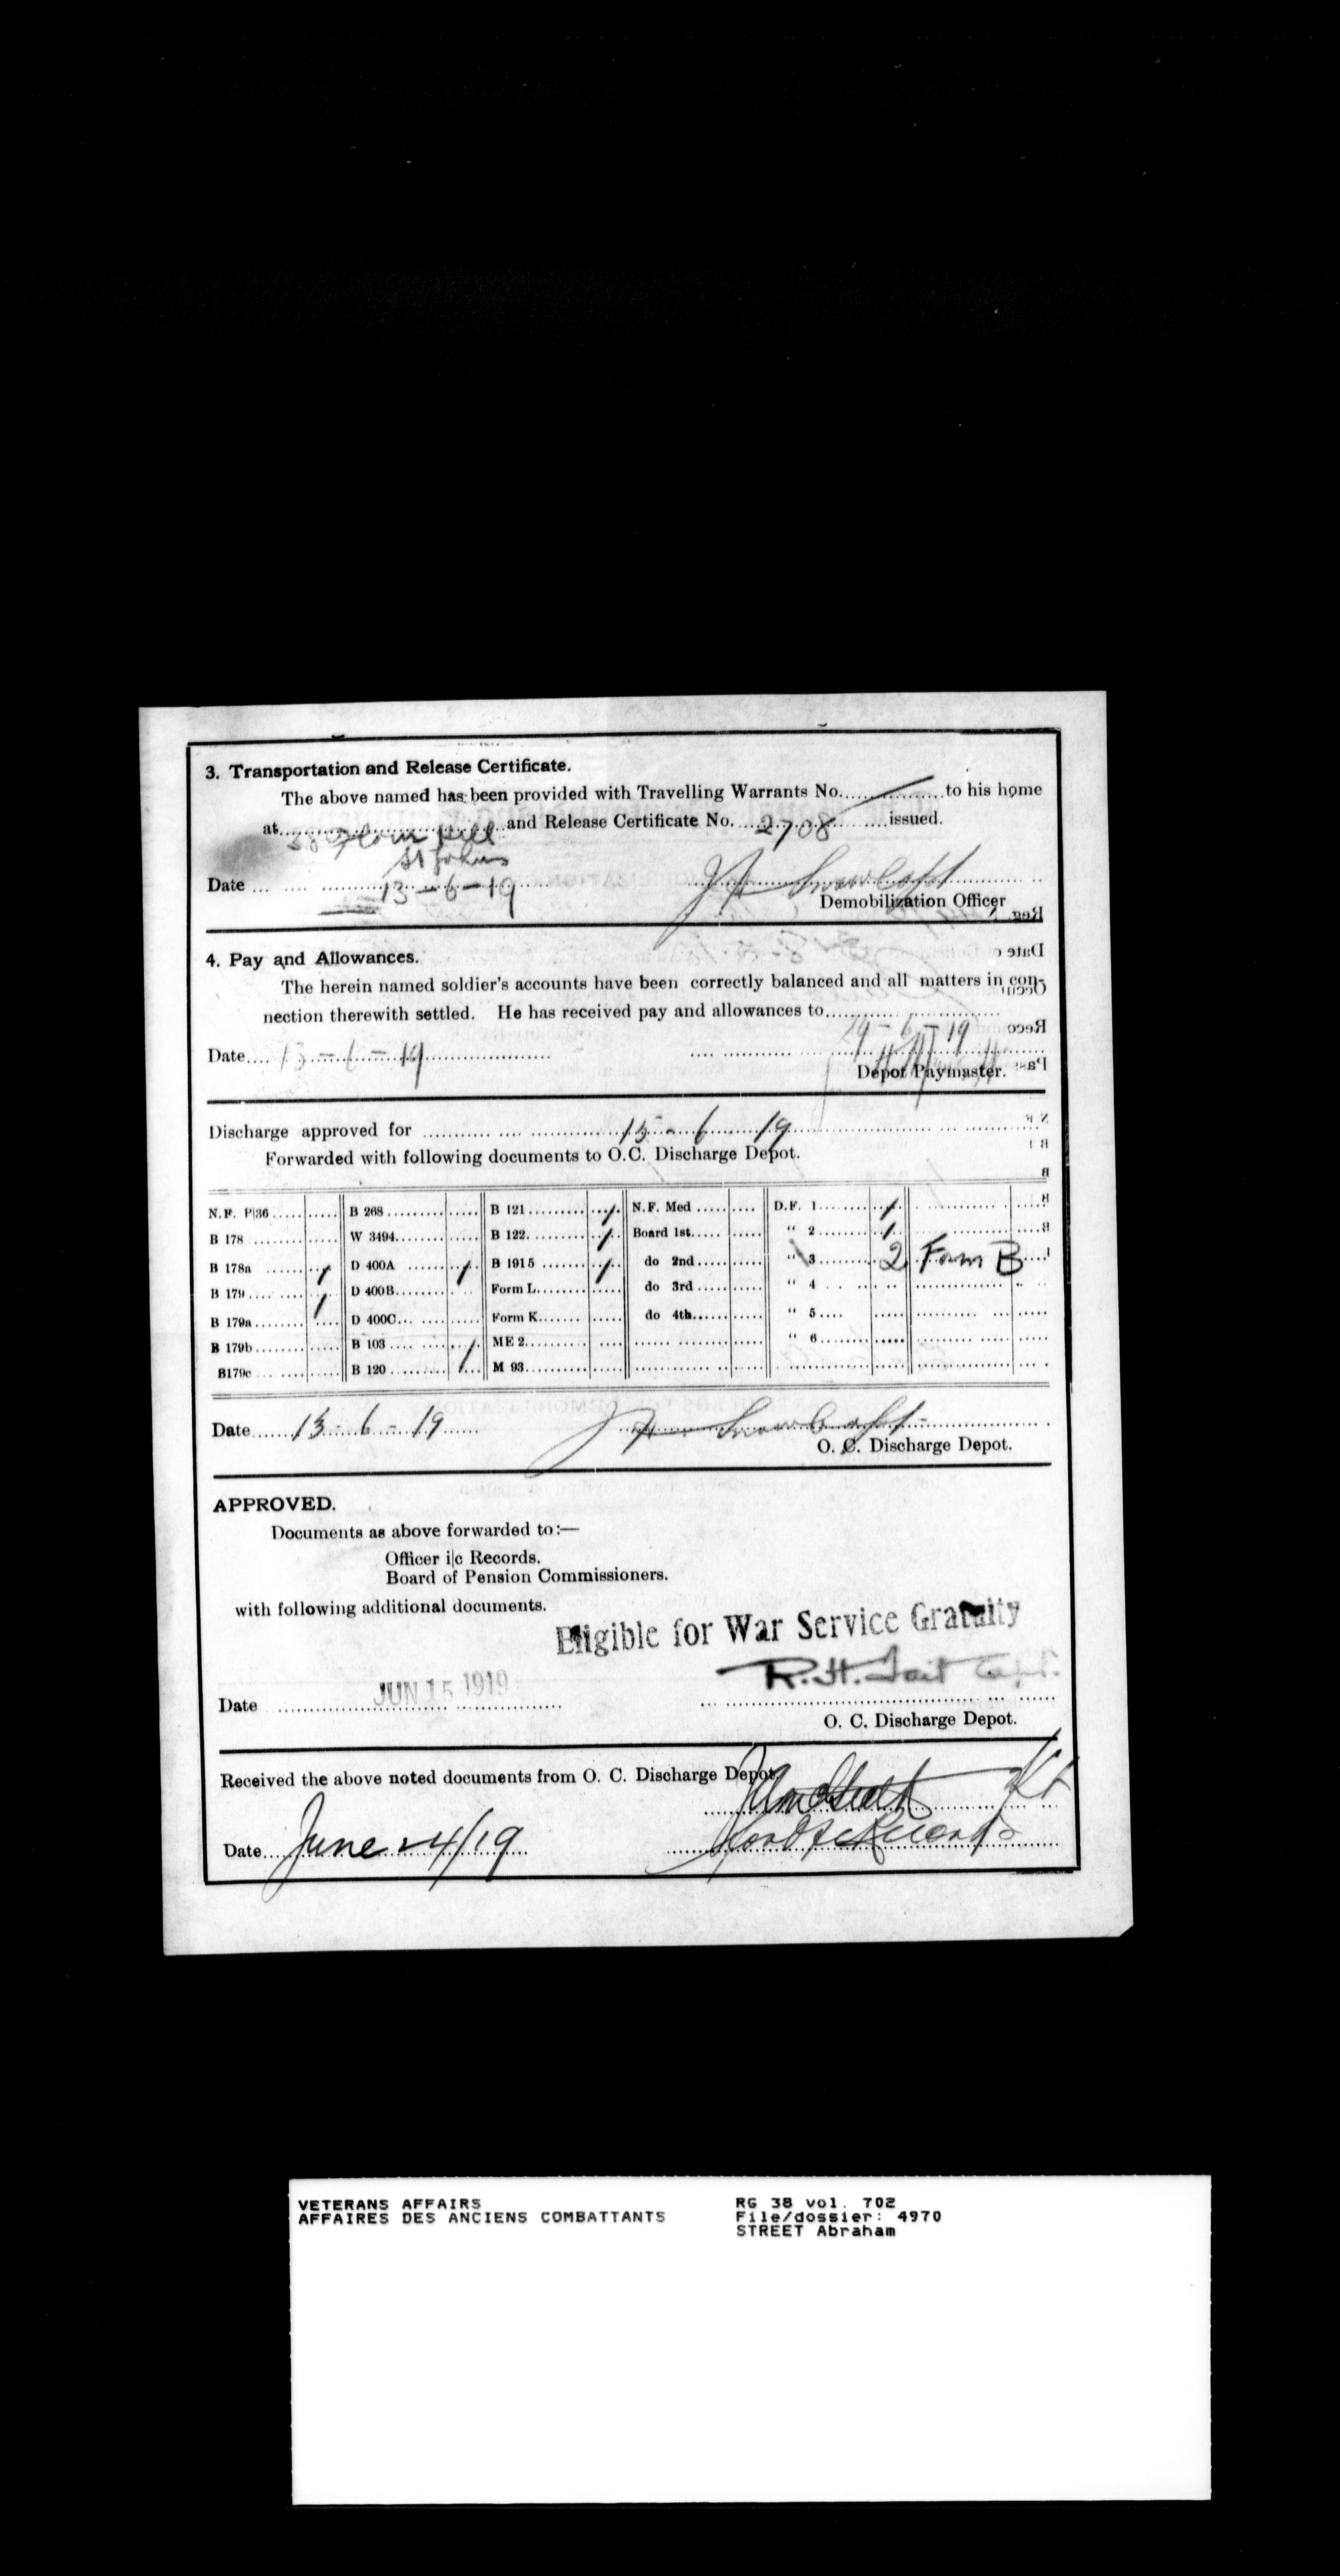 3. Transportation and Release Certificate.
The above named has been provided with Travelling Warrants No. / to his home
at 38 Flower Hill and Release Certificate No. 2708 issued.
St Johns
Date 13-6-19
Demobilization Officer
4. Pay and Allowances.
The herein named soldier's accounts have been correctly balanced and all matters in con-
nection therewith settled. He has received pay and allowances to
Date 13-6-19
Depot Paymaster.
Discharge approved for 15-6-19
Forwarded with following documents to O.C. Discharge Depot.
N.F. P|36 B 268 B 121 / N.F. Med D.F. 1 /
B 178 W 3494 B 122 / Board 1st " 2 /
B 178a / D 400A / B 1915 / do 2nd " 3 2 Form B
B 179 / D 400B Form L do 3rd " 4
B 179a D 400C Form K do 4th " 5
B 179b B 103 / ME 2 " 6
B179c B 120 / M 93
Date 13-6-19
O. C. Discharge Depot.
APPROVED.
Documents as above forwarded to:—
Officer i|c Records.
Board of Pension Commissioners.
with following additional documents.
Eligible for War Service Gratuity
R.H. Tait Capt.
Date JUN 15 1919
O. C. Discharge Depot.
Received the above noted documents from O. C. Discharge Depot.
Date June 24/19
VETERANS AFFAIRS
AFFAIRES DES ANCIENS COMBATTANTS
RG 38 vol. 702
File/dossier: 4970
STREET Abraham